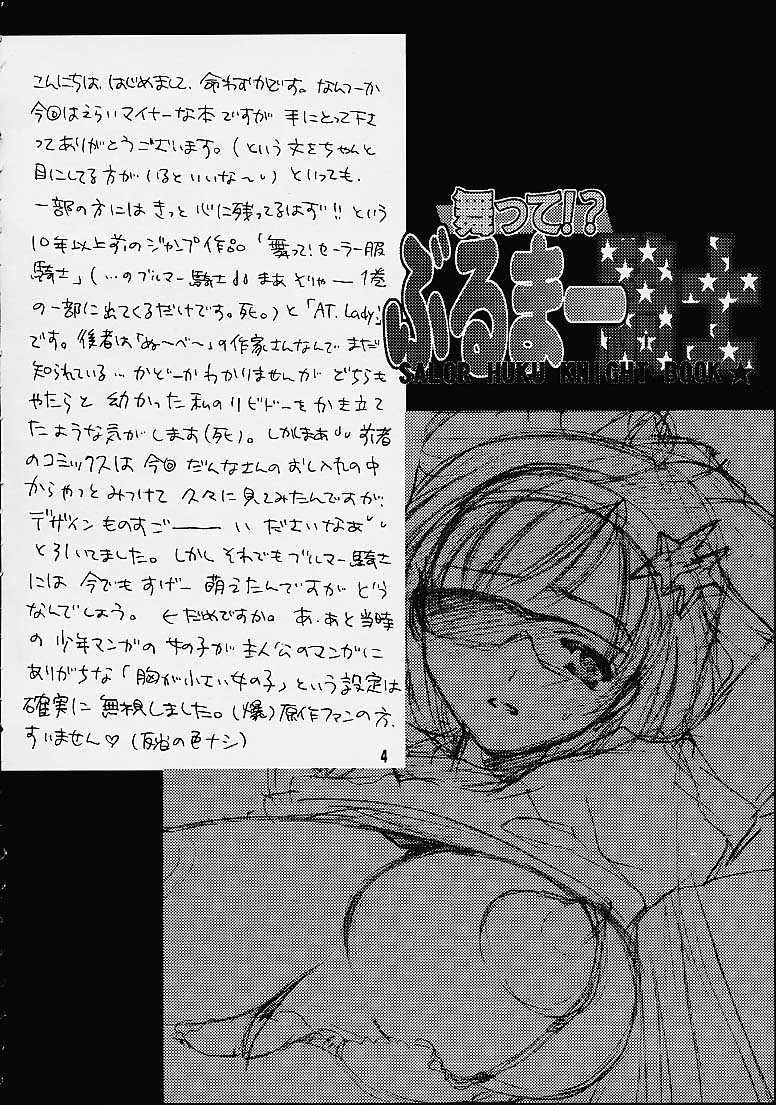 こんにちは、はじめまして、命わずかです。なんつーか
今回はえらいマイナーな本ですが 手にとって下さ
ってありがとうございます。(という文をちゃんと
目にしてる方が いるといいな〜) といっても、
一部の方には きっと 心に残ってるはず!! という
10年以上前のジャンプ作品「舞って!セーラー服
騎士」(…のブルマー騎士 まあ そりゃー 1巻
の一部に出てくるだけです。死。)と「A.T. Lady」
です。後者は「ぬ〜べ〜」の作家さんなんで まだ
知られている…かどーか わかりませんが どちらも
やたらと 幼かった 私の リビドーを かき立て
たような気がします(死)。しかしまあ 前者
のコミックスは 今回 だんなさんの おし入れの中
からやっとみつけて 久々に 見てみたんですが、
デザイン ものすごーーい ださいなあ
とろいてました。しかし それでも ブルマー騎士
には 今でも すげー 萌えたんですが どう
なんでしょう。 ←だめですか。 あ、あと 当時
の 少年マンガの 女の子が 主人公のマンガに
ありがちな「胸が小さい女の子」という設定は
確実に 無視しました。(爆) 原作ファンの方、
すいません♡(反省の色ナシ)
4
舞って!?
ぶるまー騎士
SALOR HUKU KNIGHT BOOK★